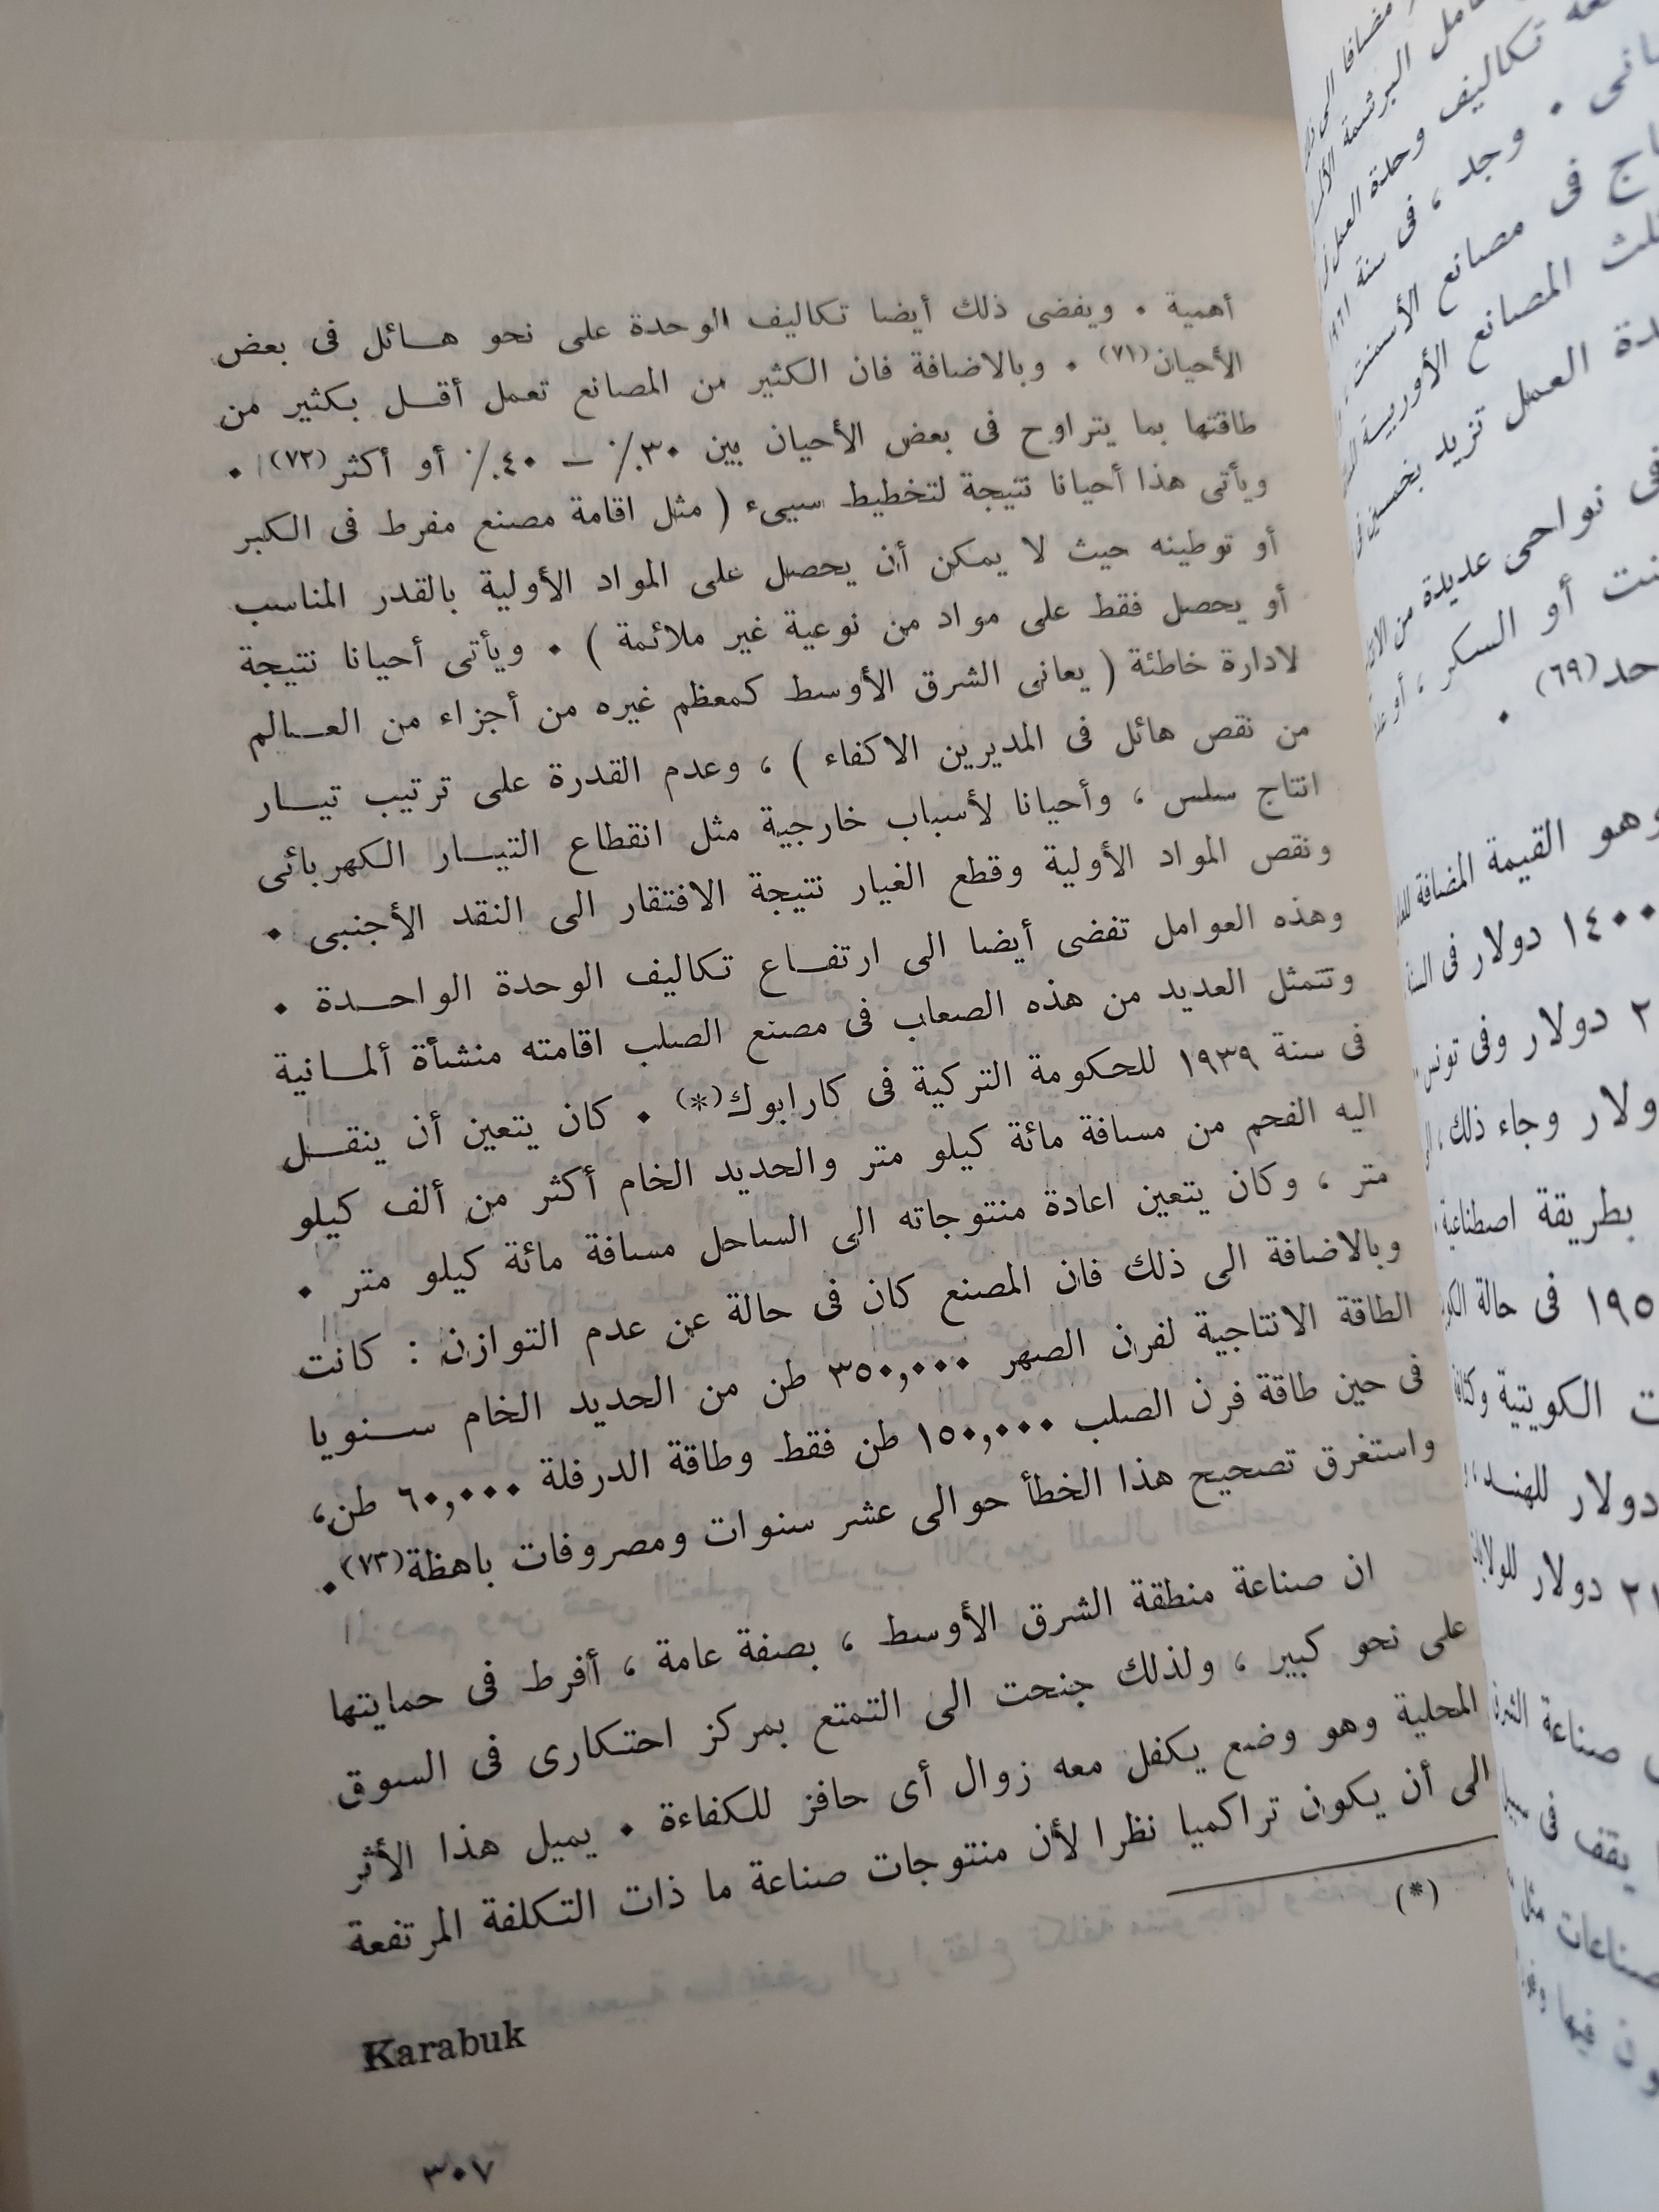 أهمية . ويفضى ذلك أيضا تكاليف الوحدة على نحو هائل فى بعض
الأحيان(٧١) . وبالاضافة فان الكثير من المصانع تعمل أقل بكثير من
طاقتها بما يتراوح فى بعض الأحيان بين ٣٠٪ – ٤٠٪ أو أكثر(٧٢) .
ويأتى هذا أحيانا نتيجة لتخطيط سيىء ( مثل اقامة مصنع مفرط فى الكبر
أو توطينه حيث لا يمكن أن يحصل على المواد الأولية بالقدر المناسب
أو يحصل فقط على مواد من نوعية غير ملائمة ) . ويأتى أحيانا نتيجة
لادارة خاطئة ( يعانى الشرق الأوسط كمعظم غيره من أجزاء من العالم
من نقص هائل فى المديرين الاكفاء ) ، وعدم القدرة على ترتيب تيار
انتاج سلس ، وأحيانا لأسباب خارجية مثل انقطاع التيار الكهربائى
ونقص المواد الأولية وقطع الغيار نتيجة الافتقار الى النقد الأجنبى .
وهذه العوامل تفضى أيضا الى ارتفاع تكاليف الوحدة الواحدة .
وتتمثل العديد من هذه الصعاب فى مصنع الصلب اقامته منشأة ألمانية
فى سنة ١٩٣٩ للحكومة التركية فى كارابوك(*) . كان يتعين أن ينقل
اليه الفحم من مسافة مائة كيلو متر والحديد الخام أكثر من ألف كيلو
متر ، وكان يتعين اعادة منتوجاته الى الساحل مسافة مائة كيلو متر .
وبالاضافة الى ذلك فان المصنع كان فى حالة عن عدم التوازن : كانت
الطاقة الانتاجية لفرن الصهر ٣٥٠,٠٠٠ طن من الحديد الخام سنويا
فى حين طاقة فرن الصلب ١٥٠,٠٠٠ طن فقط وطاقة الدرفلة ٦٠,٠٠٠ طن،
واستغرق تصحيح هذا الخطأ حوالى عشر سنوات ومصروفات باهظة(٧٣).
ان صناعة منطقة الشرق الأوسط ، بصفة عامة ، أفرط فى حمايتها
على نحو كبير ، ولذلك جنحت الى التمتع بمركز احتكارى فى السوق
المحلية وهو وضع يكفل معه زوال أى حافز للكفاءة . يميل هذا الأثر
الى أن يكون تراكميا نظرا لأن منتوجات صناعة ما ذات التكلفة المرتفعة
(*)
Karabuk
٣٠٧
مضافا الى
تكاليف وحدة العمل
وجد ، فى سنة
فى مصانع الأسمنت
المصانع الأوربية
العمل تزيد
فى نواحى عديدة من
أو السكر ، أو
(٦٩) .
وهو القيمة المضافة
١٤٠٠ دولار فى
دولار وفى تونس
وجاء ذلك ،
بطريقة اصطناعية
فى حالة
الكويتية
دولار للهند
دولار
صناعة
يقف فى